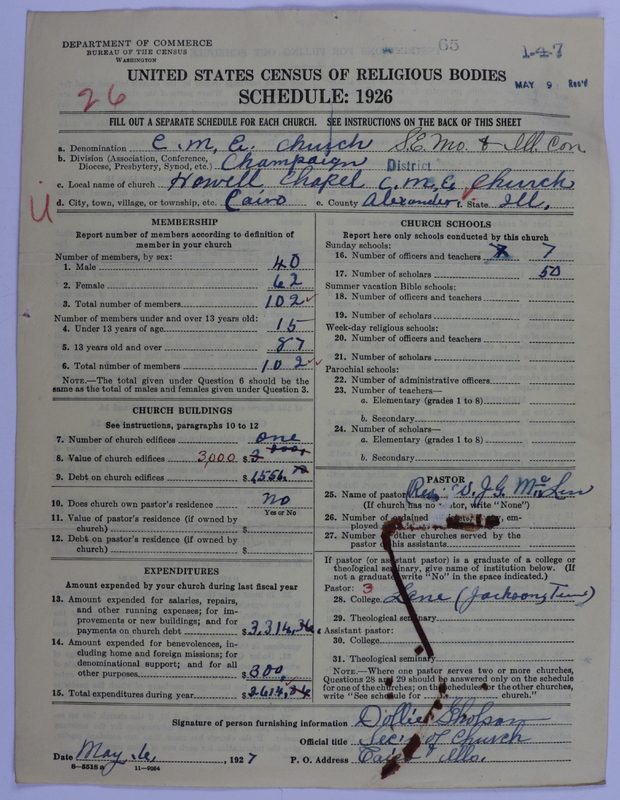 65
1-4-7
DEPARTMENT OF COMMERCE
BUREAU OF THE CENSUS
WASHINGTON
MAY 9 Rec'd
UNITED STATES CENSUS OF RELIGIOUS BODIES
26
SCHEDULE: 1926
FILL OUT A SEPARATE SCHEDULE FOR EACH CHURCH. SEE INSTRUCTIONS ON THE BACK OF THIS SHEET
a. Denomination C. M. E. Church S.E. Mo. & Ill. Con
b. Division (Association, Conference, Diocese, Presbytery, Synod, etc.) Champaign District
c. Local name of church Howell Chapel C.M.E. Church
U
d. City, town, village, or township, etc. Cairo e. County Alexander f. State Ill.
MEMBERSHIP
Report number of members according to definition of
member in your church
Number of members, by sex:
1. Male 40
2. Female 62
3. Total number of members 102
Number of members under and over 13 years old:
4. Under 13 years of age 15
5. 13 years old and over 87
6. Total number of members 102
NOTE.—The total given under Question 6 should be the
same as the total of males and females given under Question 3.
CHURCH BUILDINGS
See instructions, paragraphs 10 to 12
7. Number of church edifices one
8. Value of church edifices 3,000 $
9. Debt on church edifices $
10. Does church own pastor's residence no
Yes or No
11. Value of pastor's residence (if owned by
church) $
12. Debt on pastor's residence (if owned by
church) $
EXPENDITURES
Amount expended by your church during last fiscal year
13. Amount expended for salaries, repairs,
and other running expenses; for im-
provements or new buildings; and for
payments on church debt $
14. Amount expended for benevolences, in-
cluding home and foreign missions; for
denominational support; and for all
other purposes $ 300.
15. Total expenditures during year $
CHURCH SCHOOLS
Report here only schools conducted by this church
Sunday schools:
16. Number of officers and teachers 7
17. Number of scholars 50
Summer vacation Bible schools:
18. Number of officers and teachers
19. Number of scholars
Week-day religious schools:
20. Number of officers and teachers
21. Number of scholars
Parochial schools:
22. Number of administrative officers
23. Number of teachers—
a. Elementary (grades 1 to 8)
b. Secondary
24. Number of scholars—
a. Elementary (grades 1 to 8)
b. Secondary
PASTOR
25. Name of pastor Rev. W. J. G.
(If church has no pastor, write "None")
26. Number of ordained em-
ployed
27. Number of other churches served by the
pastor his assistants
If pastor (or assistant pastor) is a graduate of a college or
theological seminary, give name of institution below. (If
not a graduate write "No" in the space indicated.)
Pastor: 3
28. College Lane (Jackson, Tenn)
29. Theological seminary
Assistant pastor:
30. College
31. Theological seminary
NOTE.—Where one pastor serves two or more churches,
Questions 28 and 29 should be answered only on the schedule
for one of the churches; on the schedules for the other churches,
write "See schedule for church."
Signature of person furnishing information Dollie Gholson
Official title Sec. of Church
Date May 6, 1927 P. O. Address Cairo Ills.
8-5518a 11-9254